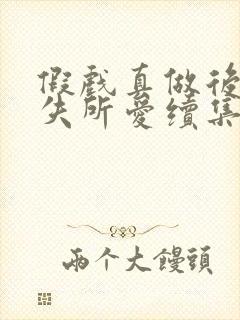 假戲真做後
失所愛續集
兩个大饅頭